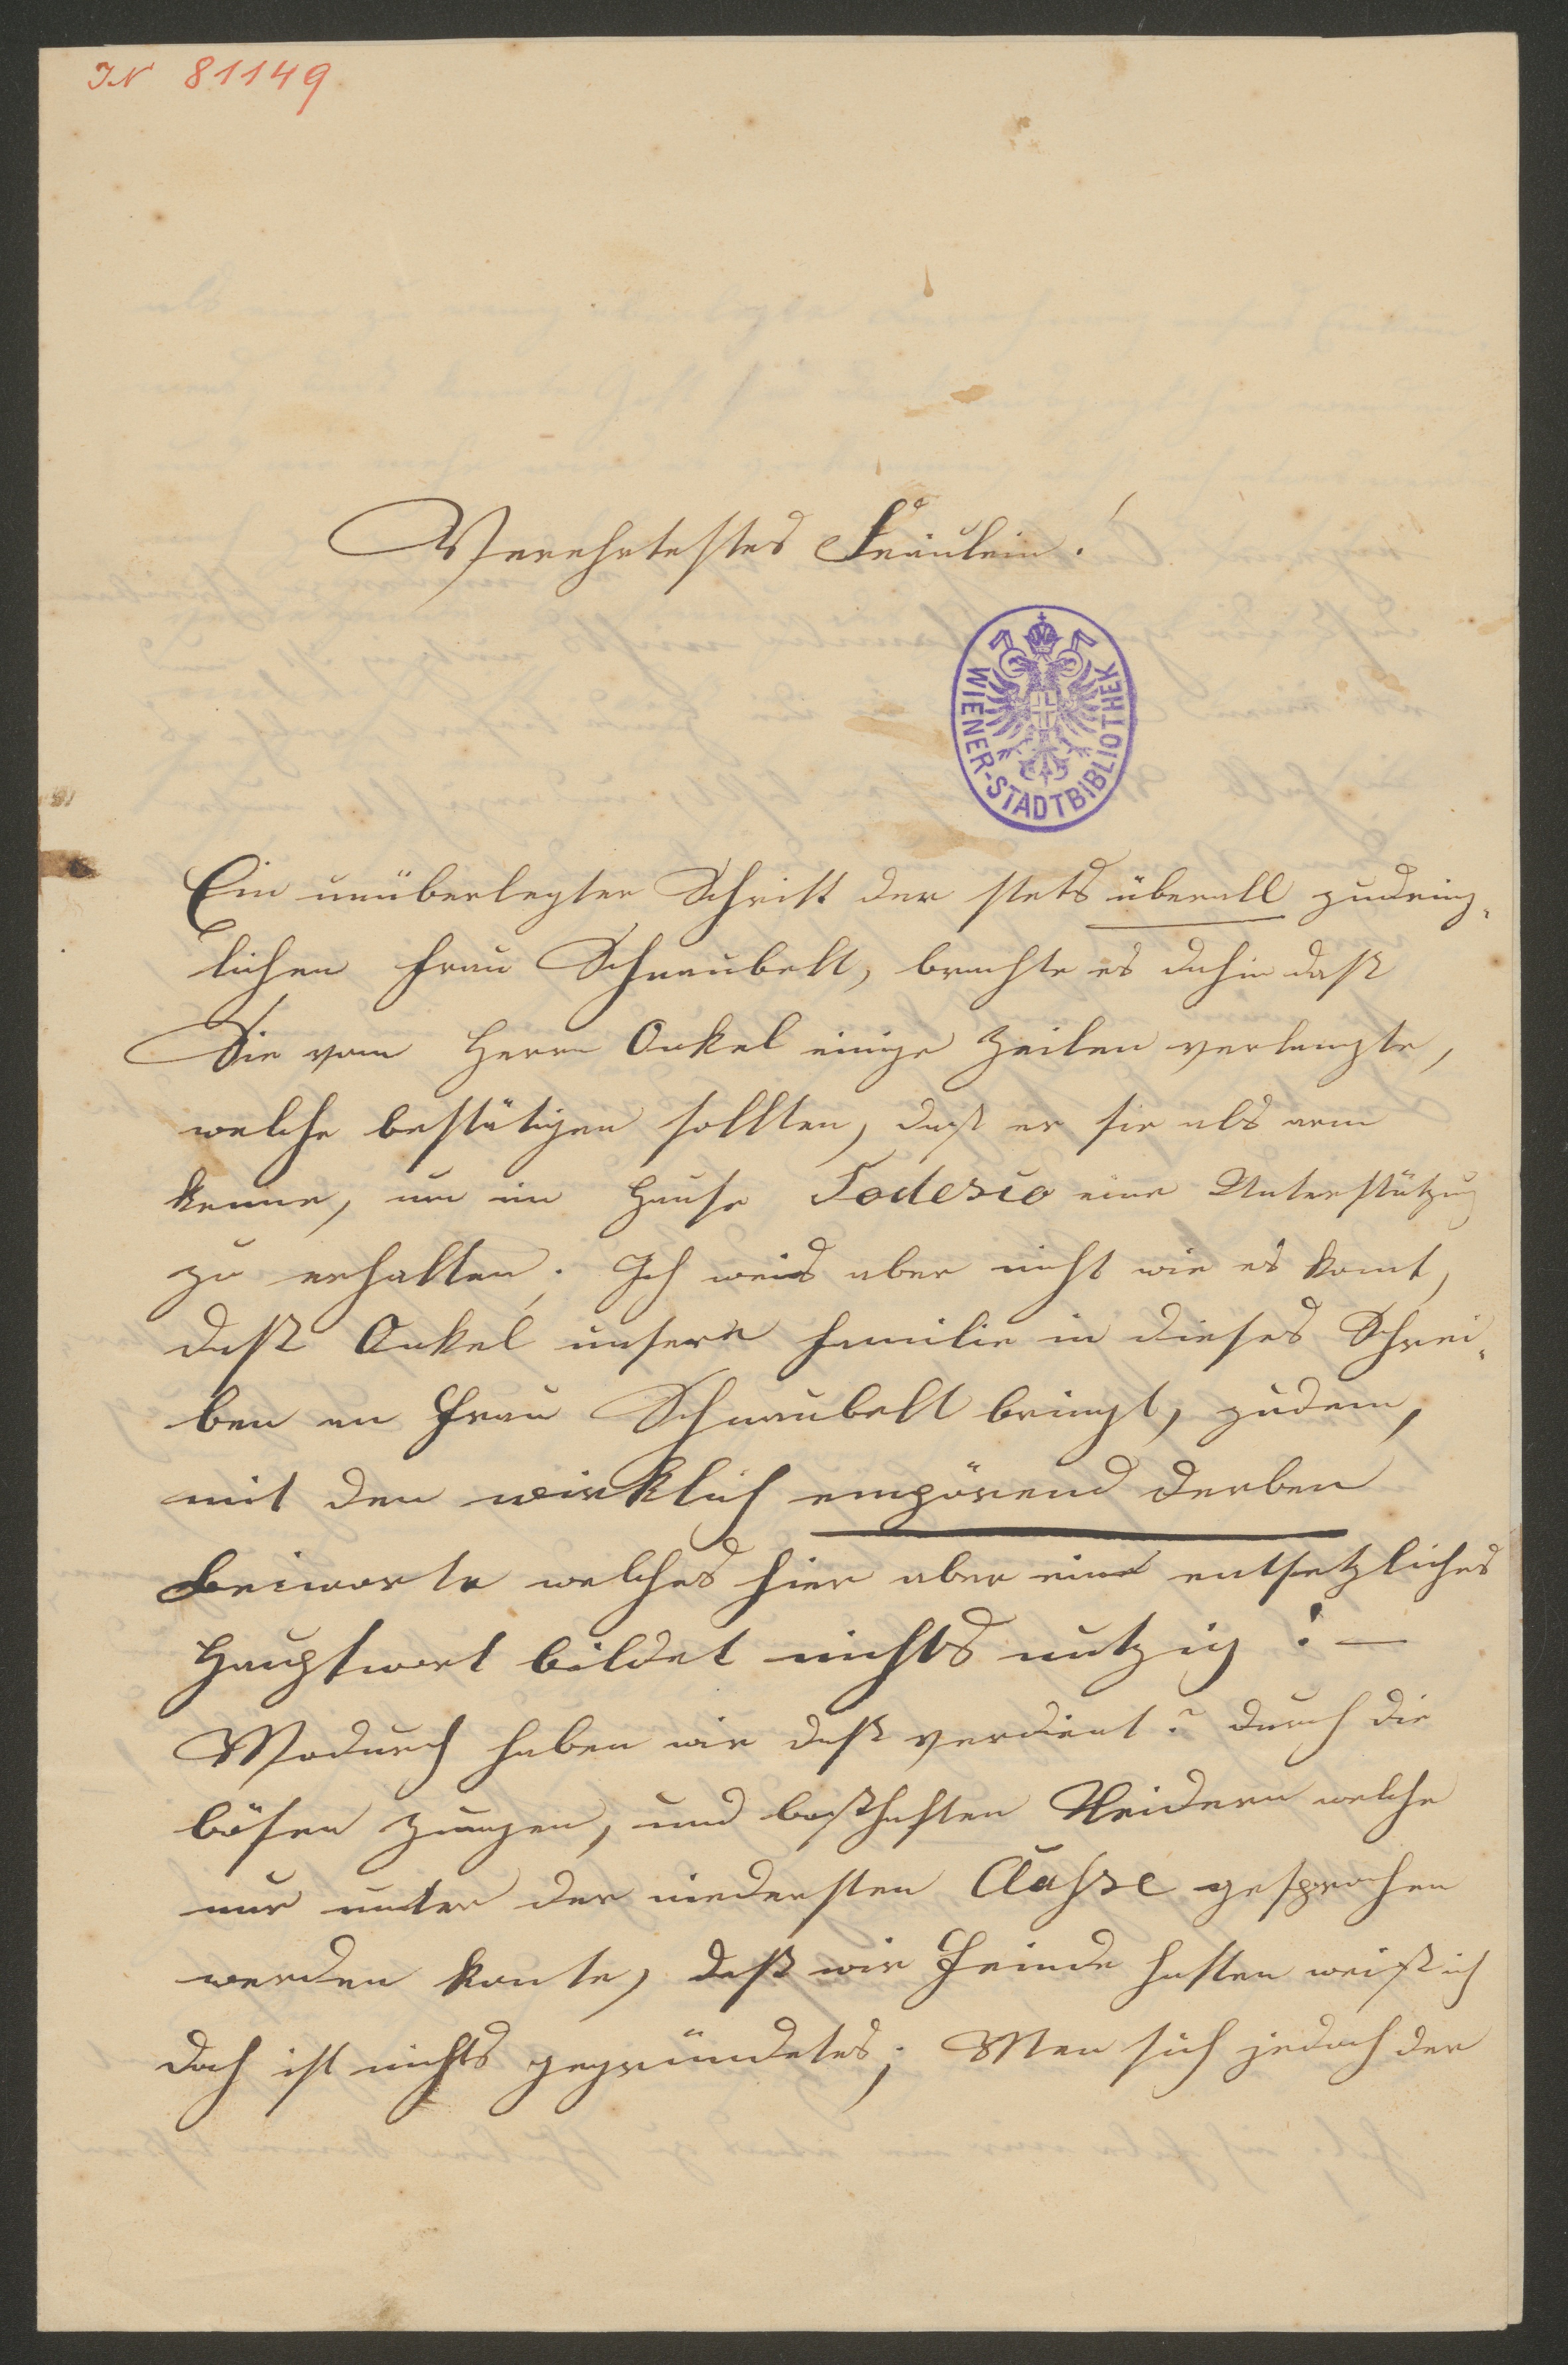 IN 81149
Verehrtestes Fräulein!
WIENER-STADTBIBLIOTHEK
Ein unüberlegter Schritt der stets überall zudring,
lichen Frau Schnaubelt, brachte es dahin daß
Sie vom Herrn Onkel einige Zeilen verlangte,
welche bestätigen sollten, daß er sie als arm
kenne, um im Hause Todesco eine Unterstützug
zu erhalten. Ich weis aber nicht wie es komt,
daß Onkel unsere Familie in dieses Schrei,
ben an Frau Schnaubelt bringt, zudem,
mit den wirklich empörend derben
Beiworte welches hier aber ein entsetzliches
Hauptwort bildet nichts nutzig! —
Wodurch haben wir daß verdient? durch die
bösen Zungen, und boßhaften Neidern welche
nur unter der niedersten Classe gesprochen
werden konte, daß wir Feinde hatten weiß ich
doch ist nichts gegründetes; Wen sich jedoch der